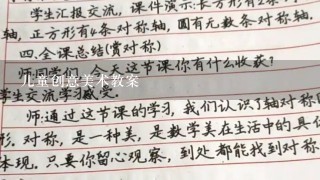 学生汇报交流，课件演示：长方形有2条
轴，正方形有4条对称轴，圆有无数条对称轴.
四.全课总结(赏对称)
师:同学们，今天这节课你有什么收获？
儿童创意美术教案
学生交流学习感受。
师:通过这节课的学习，我们认识了轴对称
形.对称，是一种美，是数学美在生活中的具
体现.只要你留心观察，到处都能找到对称